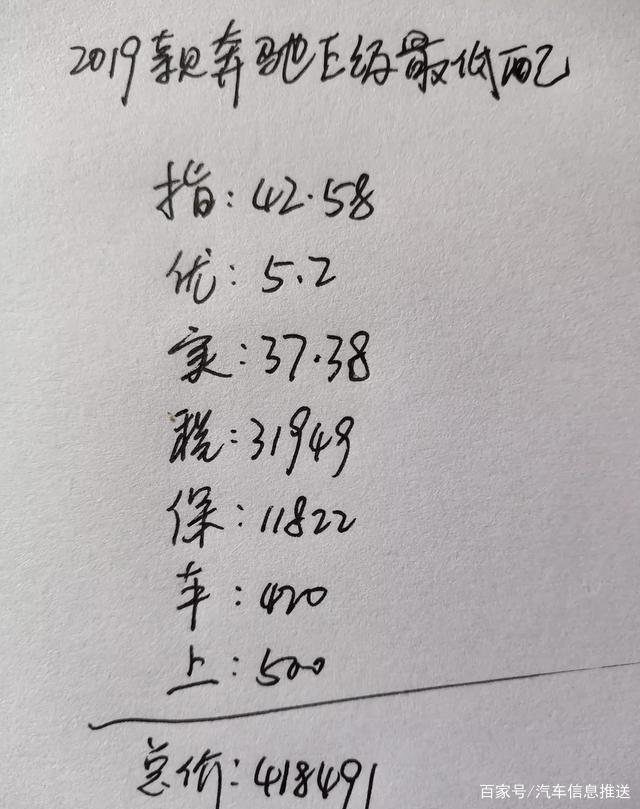 2019款奔驰E级最低配
指:42.58
优:5.2
实:37.38
税:31949
保:11822
车:420
上:500
总价:418491
百家号/汽车信息推送